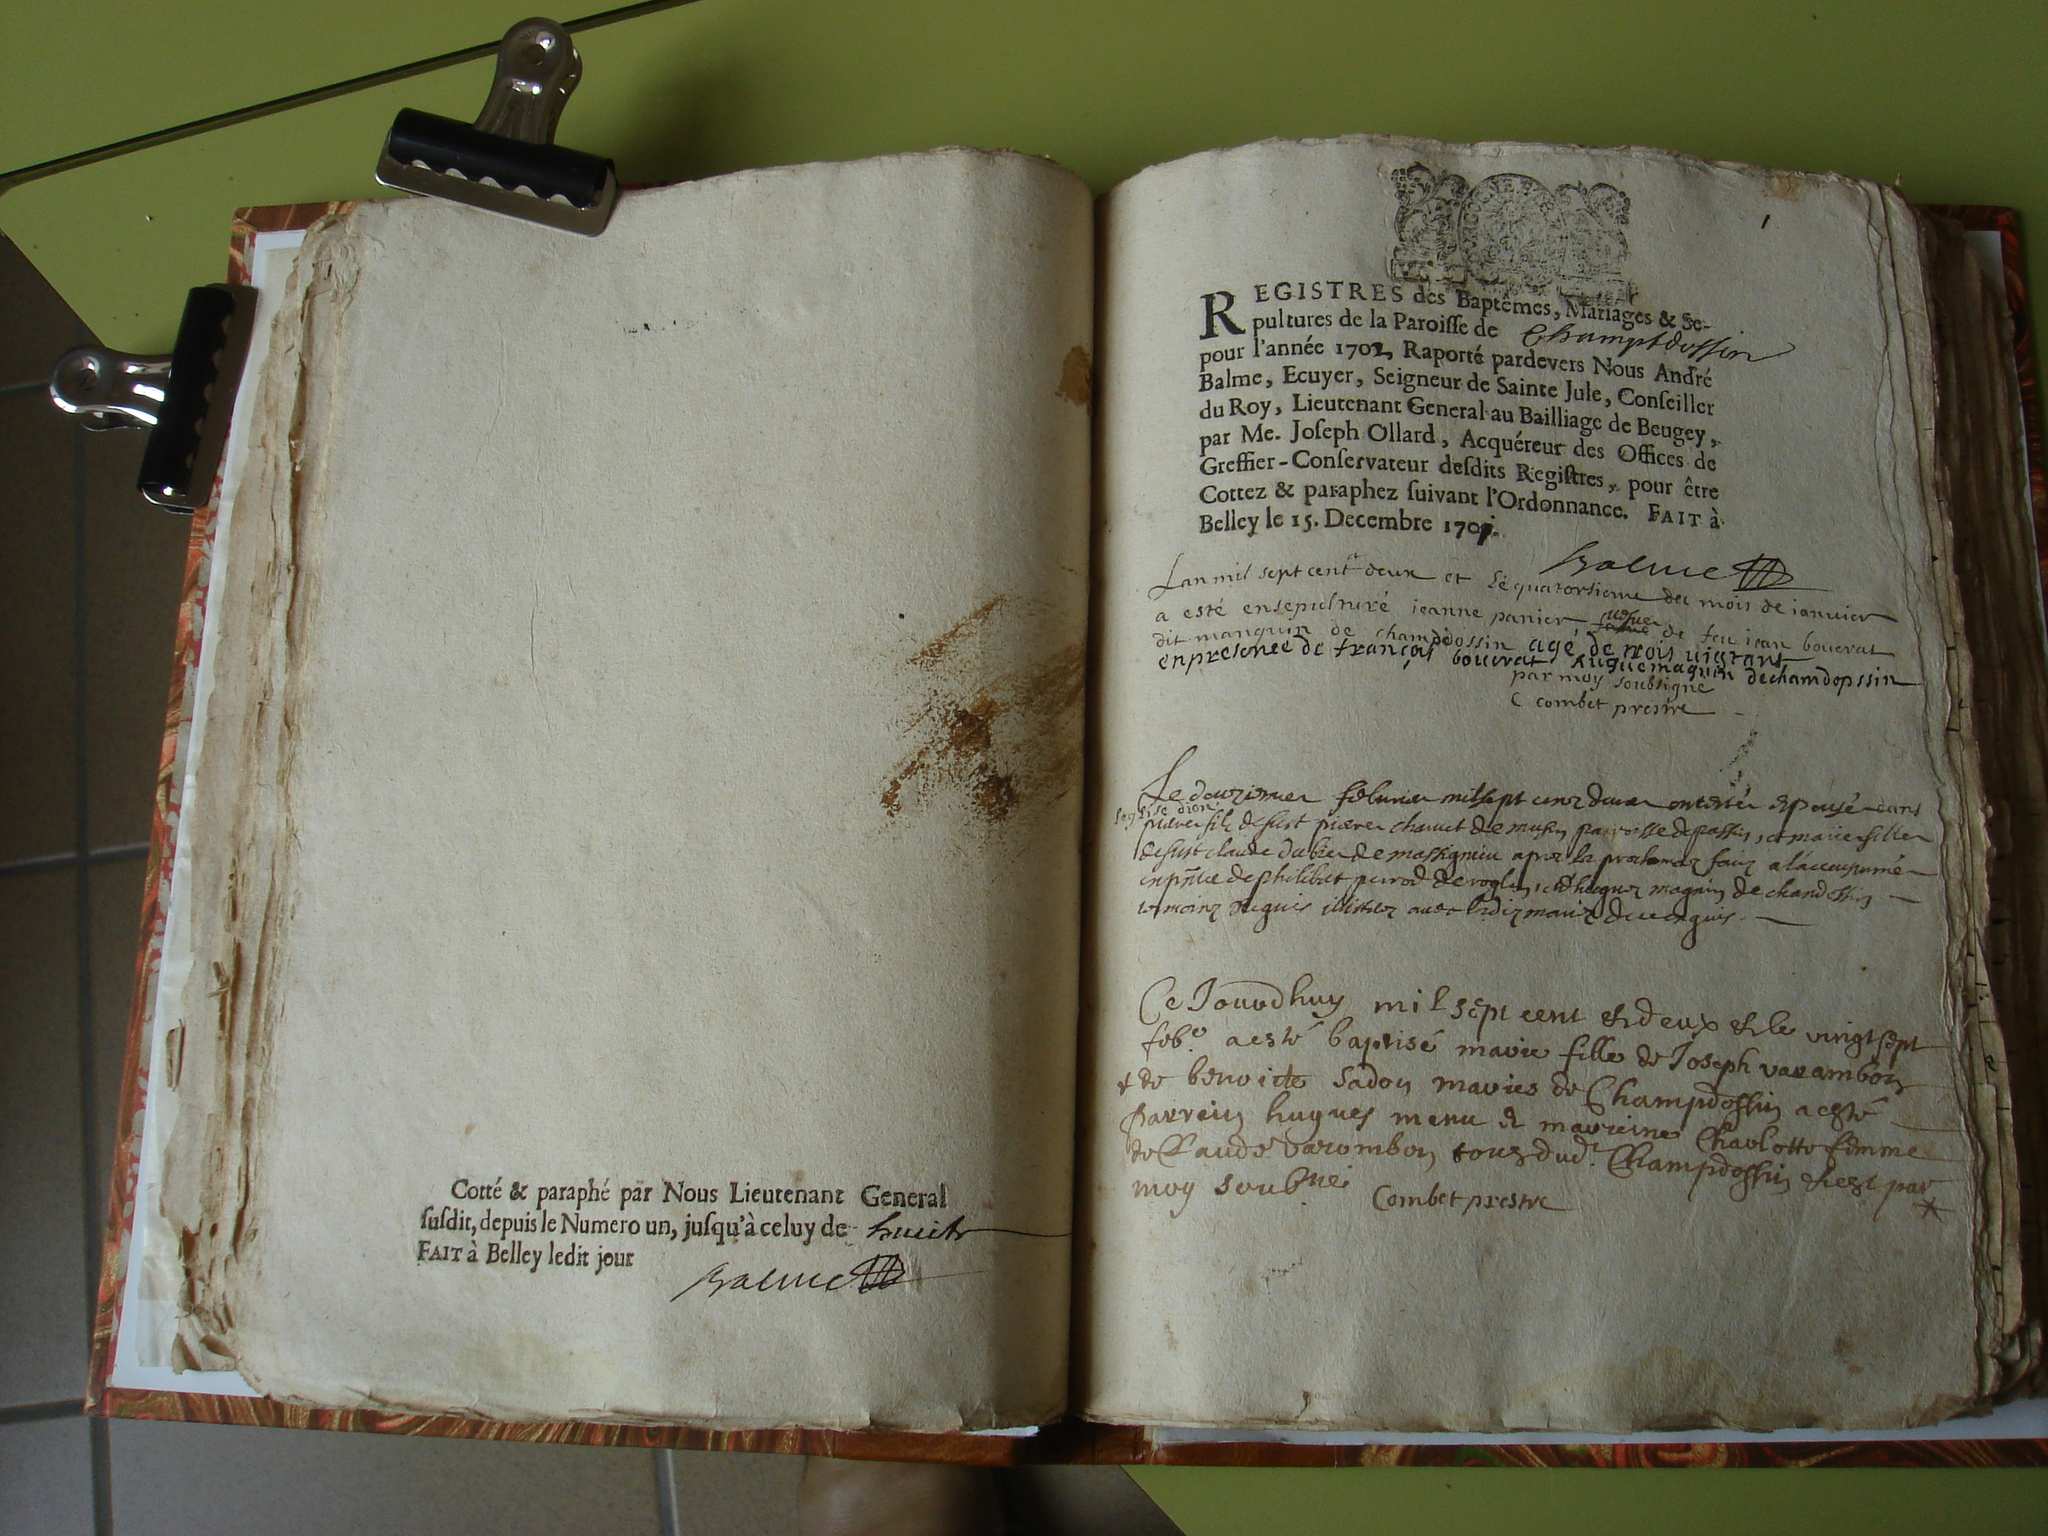 Cotté & paraphé par Nous Lieutenant General
susdit, depuis le Numero un, jusqu'à celuy de huict
FAIT à Belley ledit jour
Balme
1
REGISTRES des Baptêmes, Mariages & Se-
pultures de la Paroisse de Champtdossin
pour l'année 1702, Raporté pardevers Nous André
Balme, Ecuyer, Seigneur de Sainte Jule, Conseiller
du Roy, Lieutenant General au Bailliage de Beugey,
par Me. Joseph Ollard, Acquéreur des Offices de
Greffier-Conservateur desdits Registres, pour être
Cottez & paraphez suivant l'Ordonnance. FAIT à
Belley le 15. Decembre 1701.
Balme
Lan mil sept cent deux et le quatorsieme du mois de ianuier
a esté ensepulturé ieanne panier de feu iean bouerat
dit manguin de chamdedossin agé de
en presence de françois bouerat magnin de chamdossin
par moy soubsigne
C combet prestre
Le febvrier mil sept cens deux ont esté epousé dans
leglise dion
fils de fust chauet de parroisse de et marie fille
de fust claude de massignieu apres la
de philibert perrod de et hugues magnin de chandossin
temoins requis
Ce Jourdhuy mil sept cent et deux et le vingt sept
feb.e a esté baptisé marie fille de Joseph varambon
& de benoicte Sadon maries de Champdossin a esté
parrein hugues menu & marreine Charlotte femme
de Claude varombon tous dud. Champdossin par
moy Soubné
Combet prestre